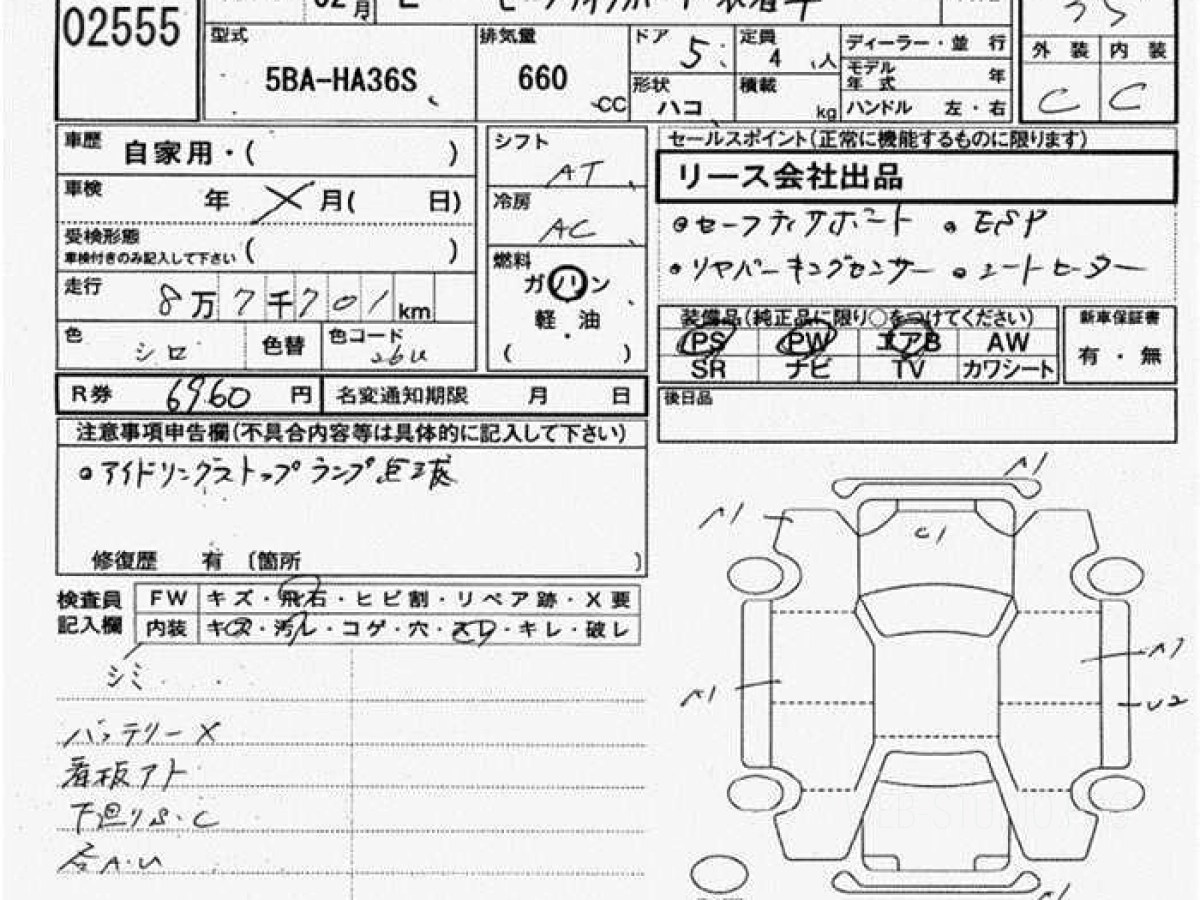 02555
02月
セーフティサポート装着車
型式
5BA-HA36S
排気量
660
CC
ドア
5
定員
4 人
形状
ハコ
積載
kg
ディーラー・並 行
モデル
年 式
年
ハンドル 左・右
外 装
内 装
C
C
車歴
自家用・( )
車検
年 X 月( 日)
受検形態
車検付きのみ記入して下さい ( )
走行
8万7千701km
色
シロ
色替
色コード
26U
シフト
AT
冷房
AC
燃料
ガソリン
軽 ・ 油
( )
セールスポイント(正常に機能するものに限ります)
リース会社出品
●セーフティサポート ●ESP
●リヤパーキングセンサー ●シートヒーター
装備品(純正品に限り○をつけてください)
PS PW エアB AW
SR ナビ TV カワシート
新車保証書
有 ・ 無
R券 6960 円
名変通知期限 月 日
後日品
注意事項申告欄(不具合内容等は具体的に記入して下さい)
●アイドリングストップランプ点滅
修復歴 有 〔箇所 〕
検査員
記入欄
FW キズ・飛石・ヒビ割・リペア跡・X要
内装 キズ・汚レ・コゲ・穴・スレ・キレ・破レ
シミ
バッテリーX
看板アト
下廻りS・C
各A・U
A1
A1
C1
A1
U2